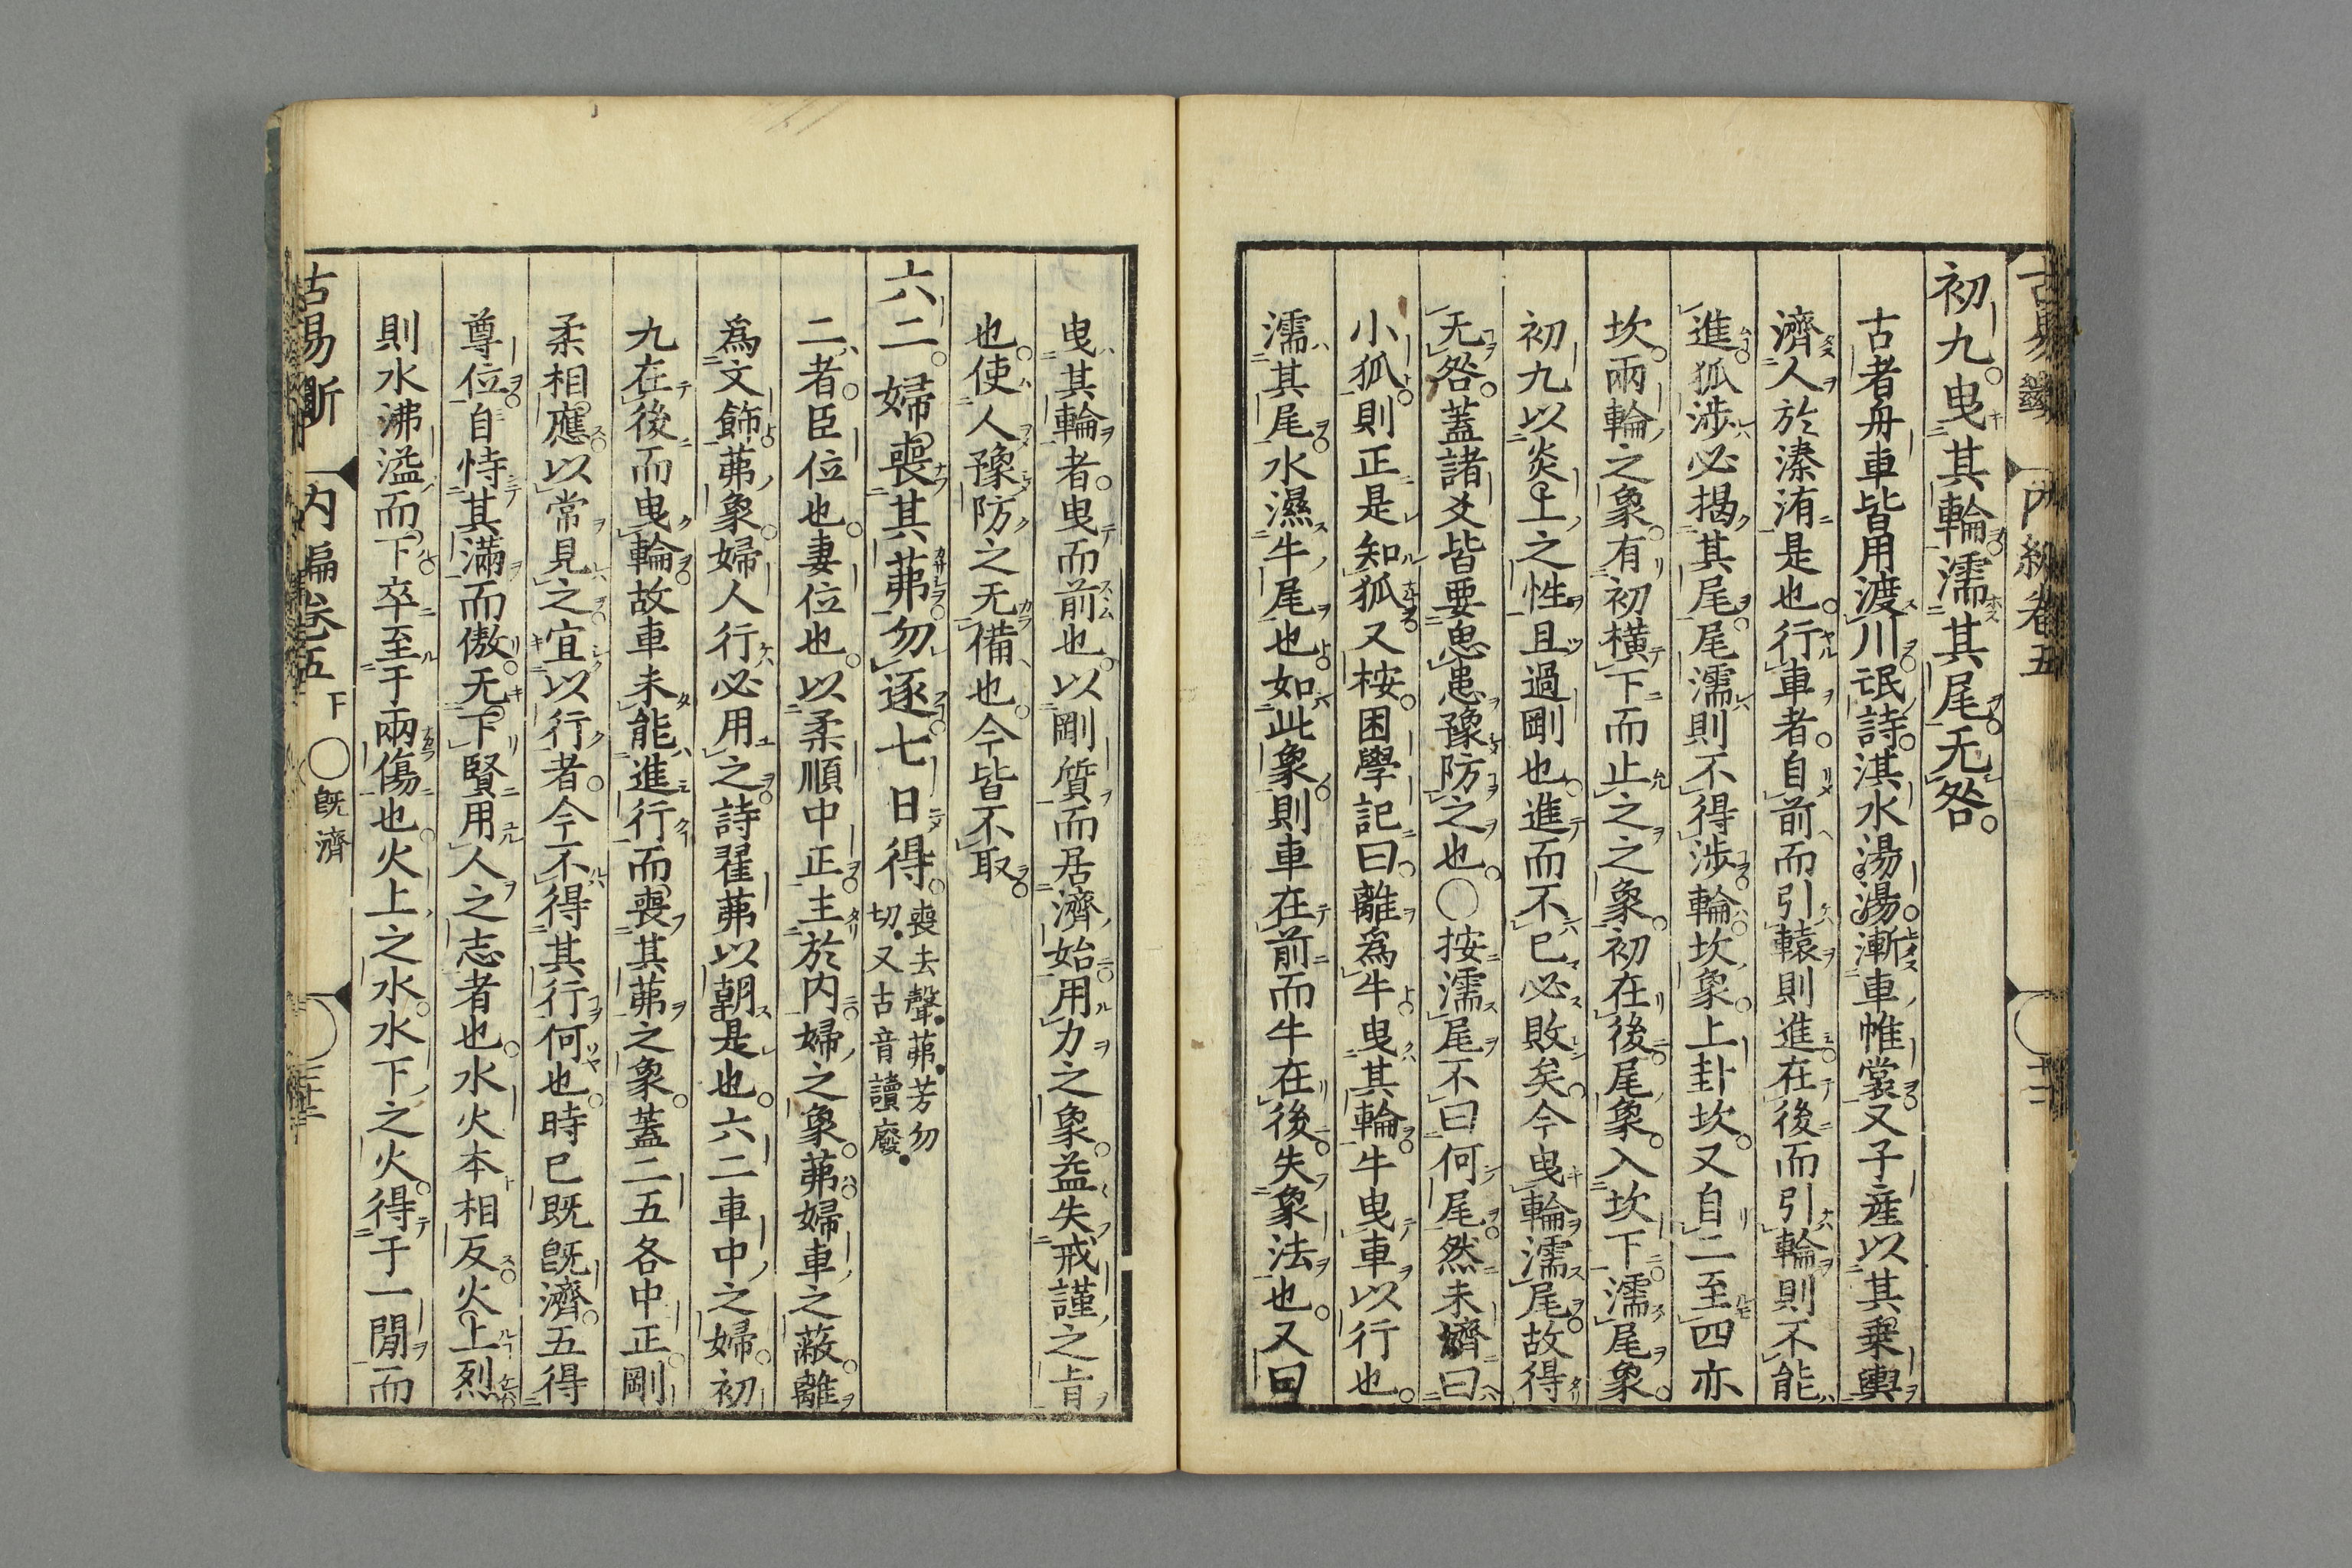 初九。曳其輪。濡其尾。无咎。
古者舟車皆用渡川。氓詩。淇水湯湯。漸車帷裳。又子産以其乗輿
濟人於溱洧是也。行車者。自前而引轅則進。在後而引輪則不能
進。狐渉必揭其尾。尾濡則不得渉。輪坎象。上卦坎。又自二至四亦
坎。兩輪之象。有初横下而止之之象。初在後。尾象。入坎下。濡尾象。
初九以炎上之性。且過剛也。進而不已必敗矣。今曳輪濡尾。故得
无咎。蓋諸爻皆要思患豫防之也。○按濡尾不曰何尾。然未濟曰
小狐。則正是知狐。又桉。困學記曰。離為牛。曳其輪。牛曳車以行也。
濡其尾。水濕牛尾也。如此象。則車在前而牛在後。失象法也。又曰
曳其輪者。曳而前也。以剛質而居濟始。用力之象。益失戒謹之旨
也。使人豫防之无備也。今皆不取。
六二。婦喪其茀。勿逐。七日得。喪去聲。茀。芳勿
切。又古音讀廢。
二者。臣位也。妻位也。以柔順中正。主於内。婦之象。茀。婦車之蔽。離
為文飾。茀象。婦人行必用之。詩翟茀以朝是也。六二車中之婦。初
九在後而曳輪。故車未能進行而喪其茀之象。蓋二五各中正。剛
柔相應。以常見之。宜以行者。今不得其行何也。時已既既濟。五得
尊位。自恃其滿而傲。无下賢用人之志者也。水火本相反。火上烈。
則水沸溢而下。卒至于兩傷也。火上之水。水下之火。得于一閒而
古易斷 内編卷五 下 ○既濟